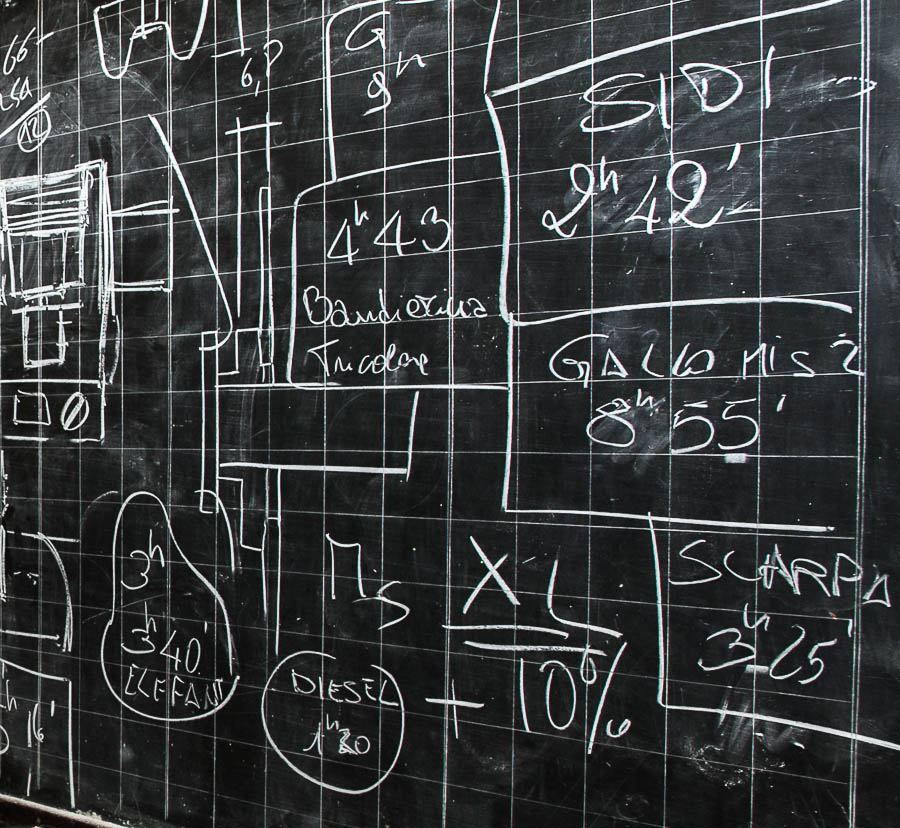 66-
12
6,P
G
9h
SIDI
2h 42'
4h 43
Bandierina
Tricolore
GALLO MIS 2
8h 55'
3h
3h 40'
ELEFANT
XL
+ 10%
DIESEL
SCARPA
3h 25'
h 16'